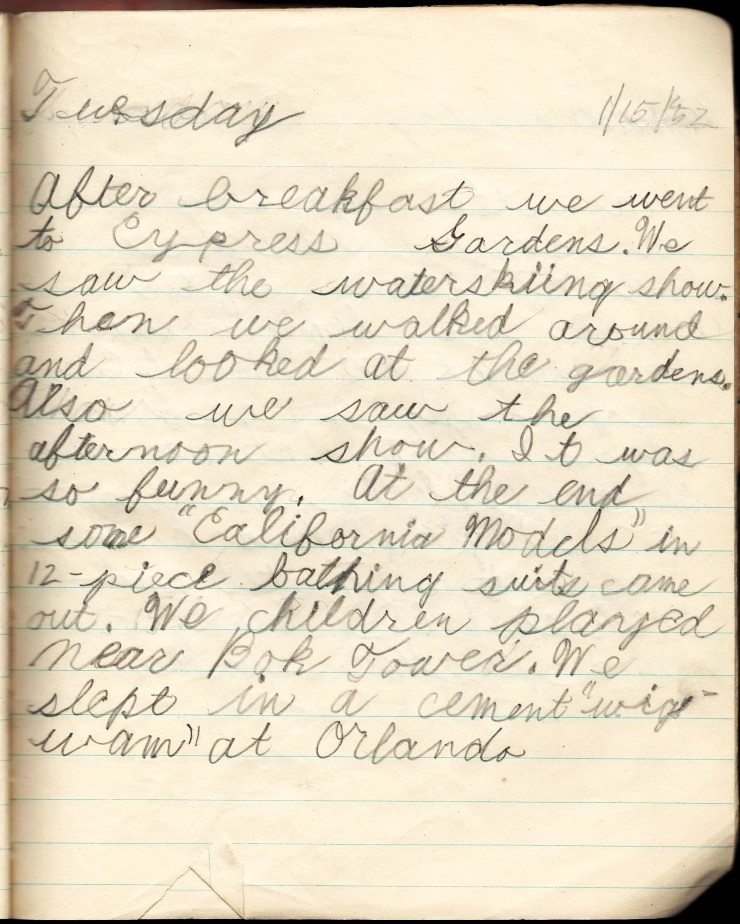 Tuesday 1/15/52
After breakfast we went
to Cypress Gardens. We
saw the waterskiing show.
Then we walked around
and looked at the gardens.
Also we saw the
afternoon show. It was
so funny. At the end
some "California Models" in
12-piece bathing suits came
out. We children played
near Bok Tower. We
slept in a cement "wig-
wam" at Orlando